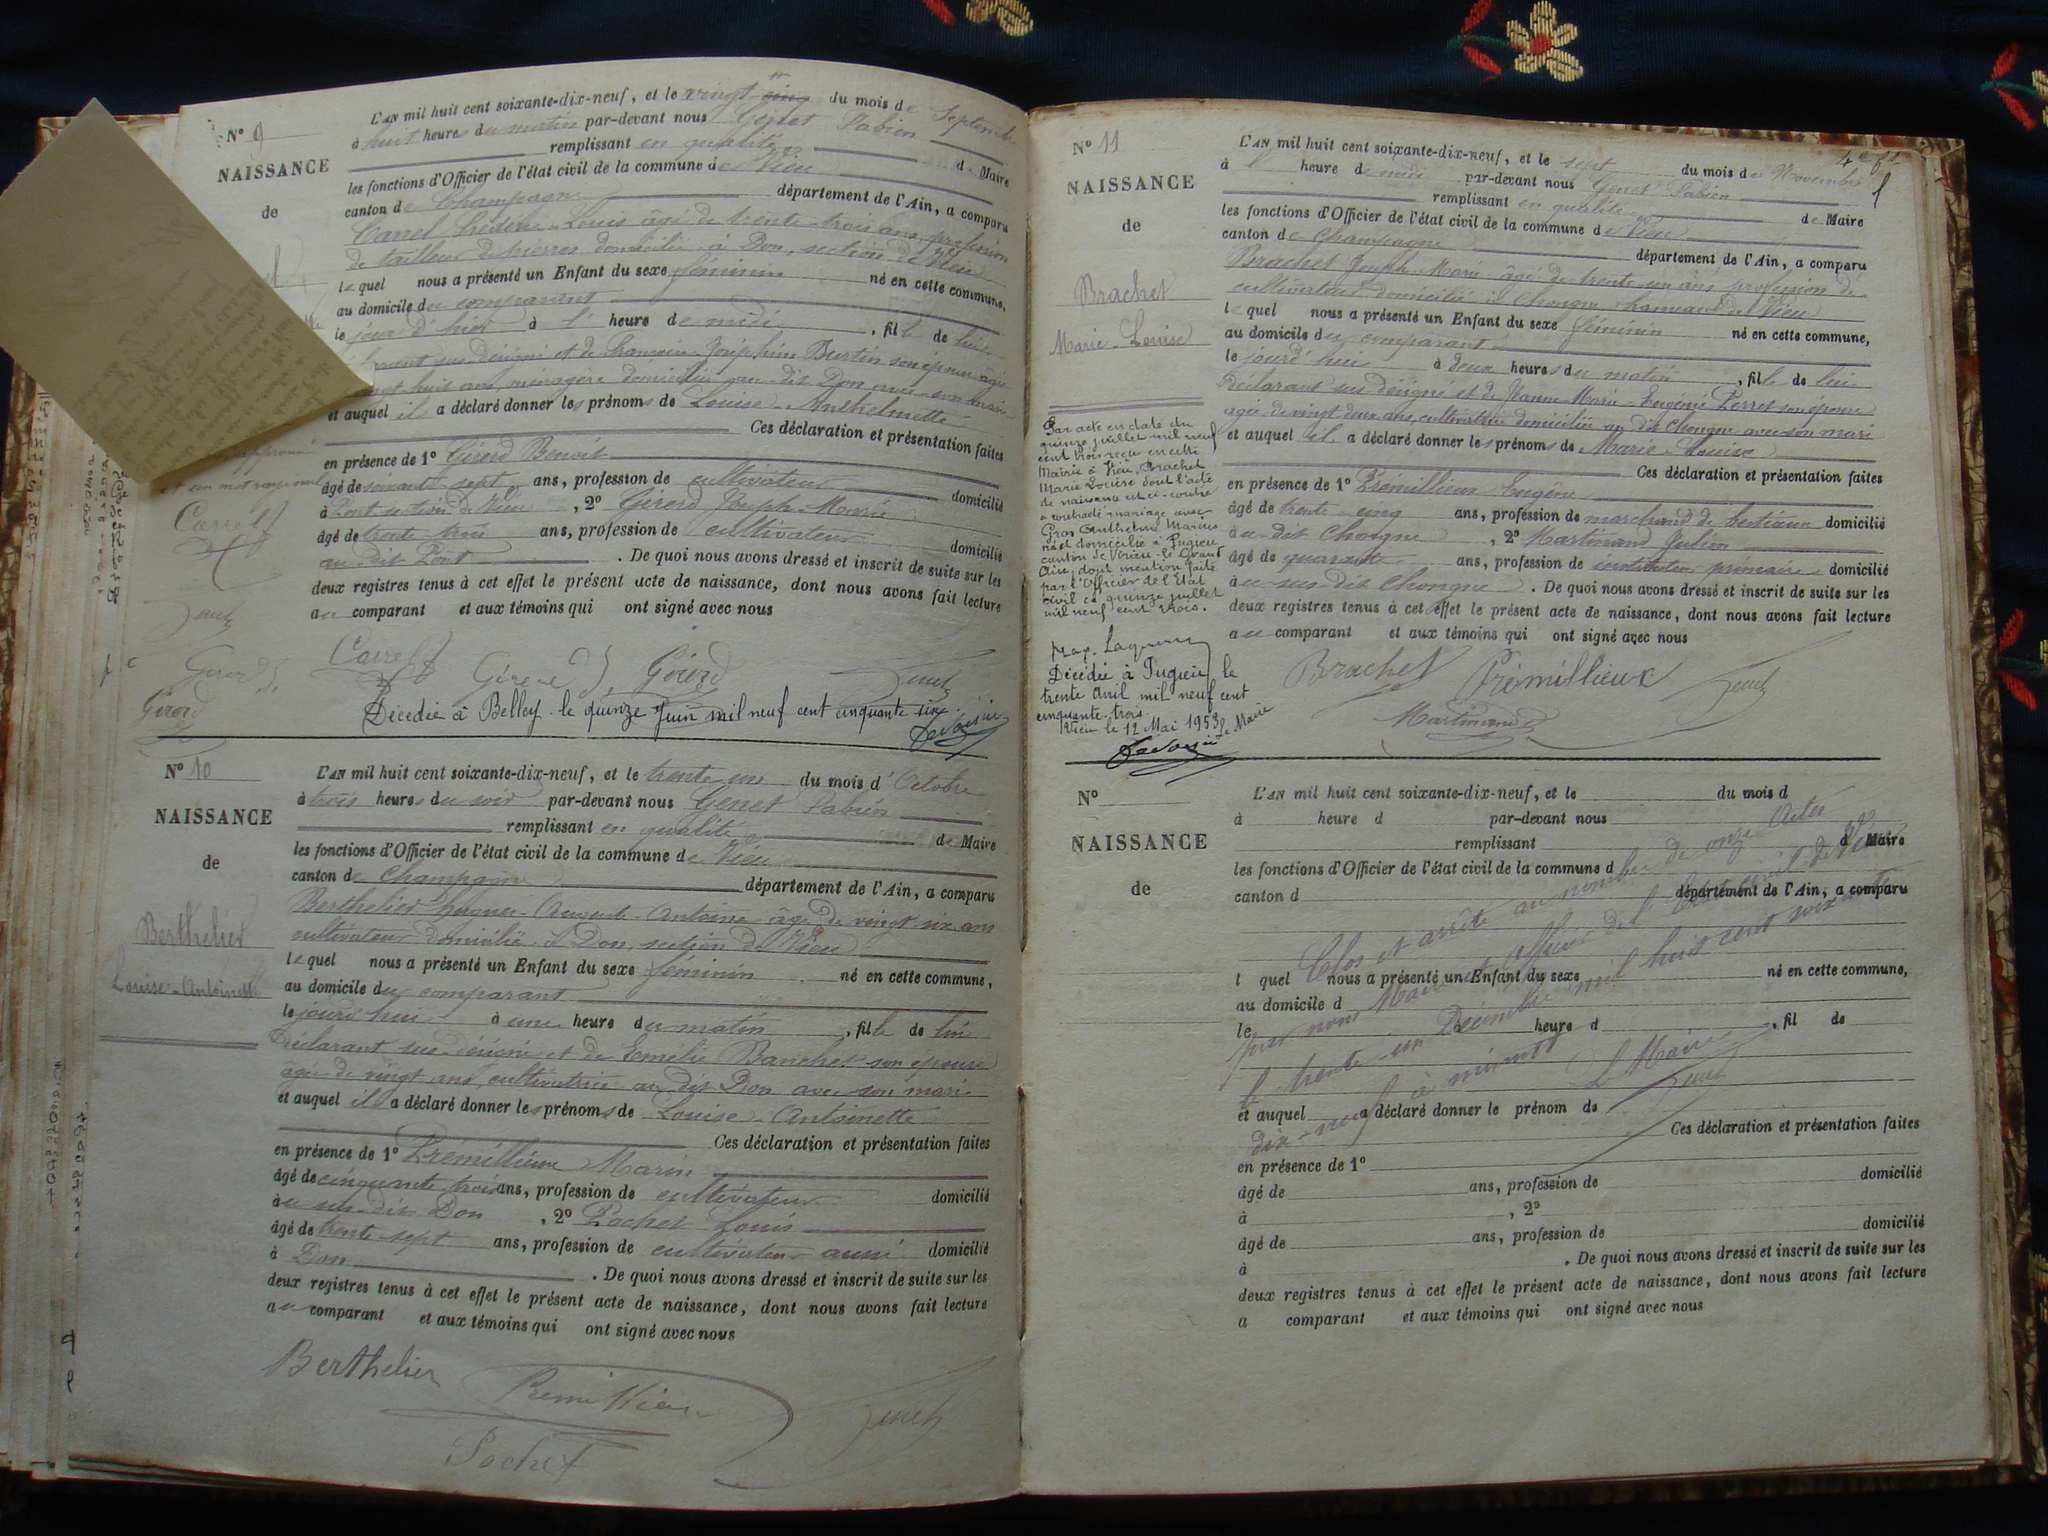 N° 9
NAISSANCE
de
L'AN mil huit cent soixante-dix-neuf, et le vingt cinq du mois de Septembre
à huit heures du matin par-devant nous Genet Fabien
remplissant en qualité de Maire
les fonctions d'Officier de l'état civil de la commune de Vieu
canton de Champagne département de l'Ain, a comparu
Carrel Louis âgé de trente-trois ans, profession
de tailleur de pierres domicilié à Don, section de Vieu
lequel nous a présenté un Enfant du sexe féminin né en cette commune,
au domicile du comparant
le jour d'hier à l' heure de midi, fille de lui
sus-désigné et de Josephine Burtin son épouse âgée
huit ans, ménagère domiciliée au dit Don avec son mari
et auquel il a déclaré donner les prénoms de Louise-Anthelmette
Ces déclaration et présentation faites
en présence de 1° Gérerd Benoit
âgé de sept ans, profession de cultivateur domicilié
à section de Vieu, 2° Gérerd Joseph-Marie
âgé de trente-trois ans, profession de cultivateur domicilié
au dit Pont. De quoi nous avons dressé et inscrit de suite sur les
deux registres tenus à cet effet le présent acte de naissance, dont nous avons fait lecture
au comparant et aux témoins qui ont signé avec nous
Carrel Gérerd Gérerd Genet
Décédée à Belley le quinze Juin mil neuf cent cinquante six.
N° 10
NAISSANCE
de
Berthelier
Louise-Antoinette
L'AN mil huit cent soixante-dix-neuf, et le trente un du mois d'Octobre
à trois heures du soir par-devant nous Genet Fabien
remplissant en qualité de Maire
les fonctions d'Officier de l'état civil de la commune de Vieu
canton de Champagne département de l'Ain, a comparu
Berthelier Auguste-Antoine âgé de vingt-six ans
cultivateur domicilié à Don, section de Vieu
lequel nous a présenté un Enfant du sexe féminin né en cette commune,
au domicile du comparant
le jourd'hui à une heure du matin, fille de lui
Déclarant sus-désigné et de Emélie Banchet son épouse
agée de vingt ans, cultivatrice au dit Don avec son mari
et auquel il a déclaré donner les prénoms de Louise-Antoinette
Ces déclaration et présentation faites
en présence de 1° Prémillieux Marin
âgé de cinquante trois ans, profession de cultivateur domicilié
au sus-dit Don, 2° Pochet Louis
âgé de trente-sept ans, profession de cultivateur aussi domicilié
à Don. De quoi nous avons dressé et inscrit de suite sur les
deux registres tenus à cet effet le présent acte de naissance, dont nous avons fait lecture
au comparant et aux témoins qui ont signé avec nous
Berthelier Premillieux Genet
Pochet
N° 11
NAISSANCE
de
Brachet
Marie-Louise
L'AN mil huit cent soixante-dix-neuf, et le sept du mois de Novembre
à l' heure de midi par-devant nous Genet Fabien
remplissant en qualité de Maire
les fonctions d'Officier de l'état civil de la commune de Vieu
canton de Champagne département de l'Ain, a comparu
Brachet Joseph-Marie âgé de trente-un ans profession de
cultivateur domicilié à Chongne hameau de Vieu
lequel nous a présenté un Enfant du sexe féminin né en cette commune,
au domicile du comparant
le jourd'hui à deux heures du matin, fille de lui
Déclarant sus-désigné et de Jeanne-Marie-Eugénie Perret son épouse
agée de vingt deux ans, cultivatrice domiciliée au dit Chongne avec son mari
et auquel il a déclaré donner les prénoms de Marie-Louise
Ces déclaration et présentation faites
en présence de 1° Prémillieux Eugène
âgé de trente-cinq ans, profession de marchand de bestiaux domicilié
au dit Chongne, 2° Martinand Julien
âgé de quarante ans, profession de instituteur primaire domicilié
au sus dit Chongne. De quoi nous avons dressé et inscrit de suite sur les
deux registres tenus à cet effet le présent acte de naissance, dont nous avons fait lecture
au comparant et aux témoins qui ont signé avec nous
Brachet Prémillieux Genet
Martinand
Par acte en date du
quinze juillet mil neuf
cent trois reçu en cette
Mairie à Vieu, Brachet
Marie Louise dont l'acte
de naissance est ci-contre
a contracté mariage avec
Gros Anthelme Marius
né et domicilié à Pugieu
canton de Virieu-le-Grand
Ain, dont mention faite
par l'Officier de l'Etat
civil ce quinze juillet
mil neuf cent trois.
Décédée à Pugieu le
trente avril mil neuf cent
cinquante-trois
Vieu le 12 Mai 1953 Le Maire
N°
NAISSANCE
de
L'AN mil huit cent soixante-dix-neuf, et le du mois d
à heure d par-devant nous
remplissant d Maire
les fonctions d'Officier de l'état civil de la commune d
canton d département de l'Ain, a comparu
l quel nous a présenté un Enfant du sexe né en cette commune,
au domicile d
le à heure d, fil de
et auquel a déclaré donner le prénom de
Ces déclaration et présentation faites
en présence de 1°
âgé de ans, profession de domicilié
à, 2°
âgé de ans, profession de domicilié
à. De quoi nous avons dressé et inscrit de suite sur les
deux registres tenus à cet effet le présent acte de naissance, dont nous avons fait lecture
a comparant et aux témoins qui ont signé avec nous
Clos et arrêté au nombre de onze Actes
par nous Maire et officier de l'état civil de Vieu
le trente-un Décembre mil huit cent soixante
dix-neuf à minuit
Le Maire
Genet